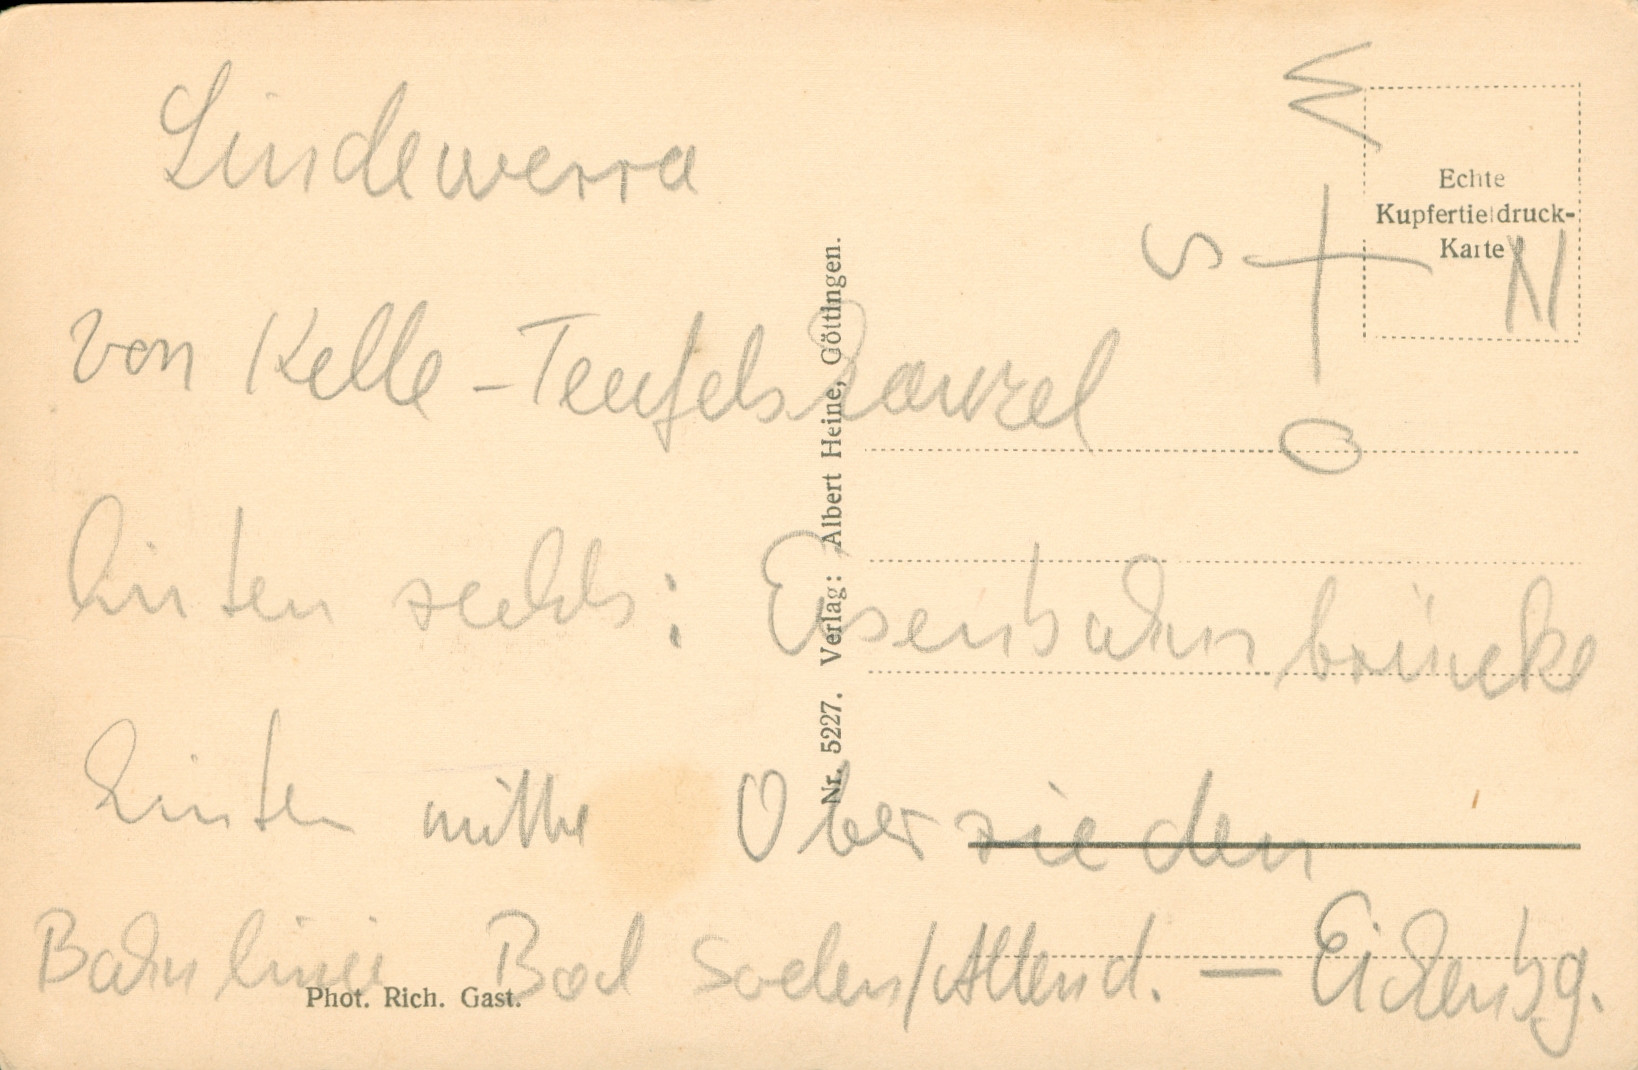 Lindewerra
von Kelle - Teufelskanzel
hinten rechts: Eisenbahnbrücke
hinten mitte Oberrieden
Bahnlinie Bad Soden/Allend. — Eichenbg.
W
S N
O
Echte
Kupfertiefdruck-
Karte
Nr. 5227. Verlag: Albert Heine, Göttingen.
Phot. Rich. Gast.